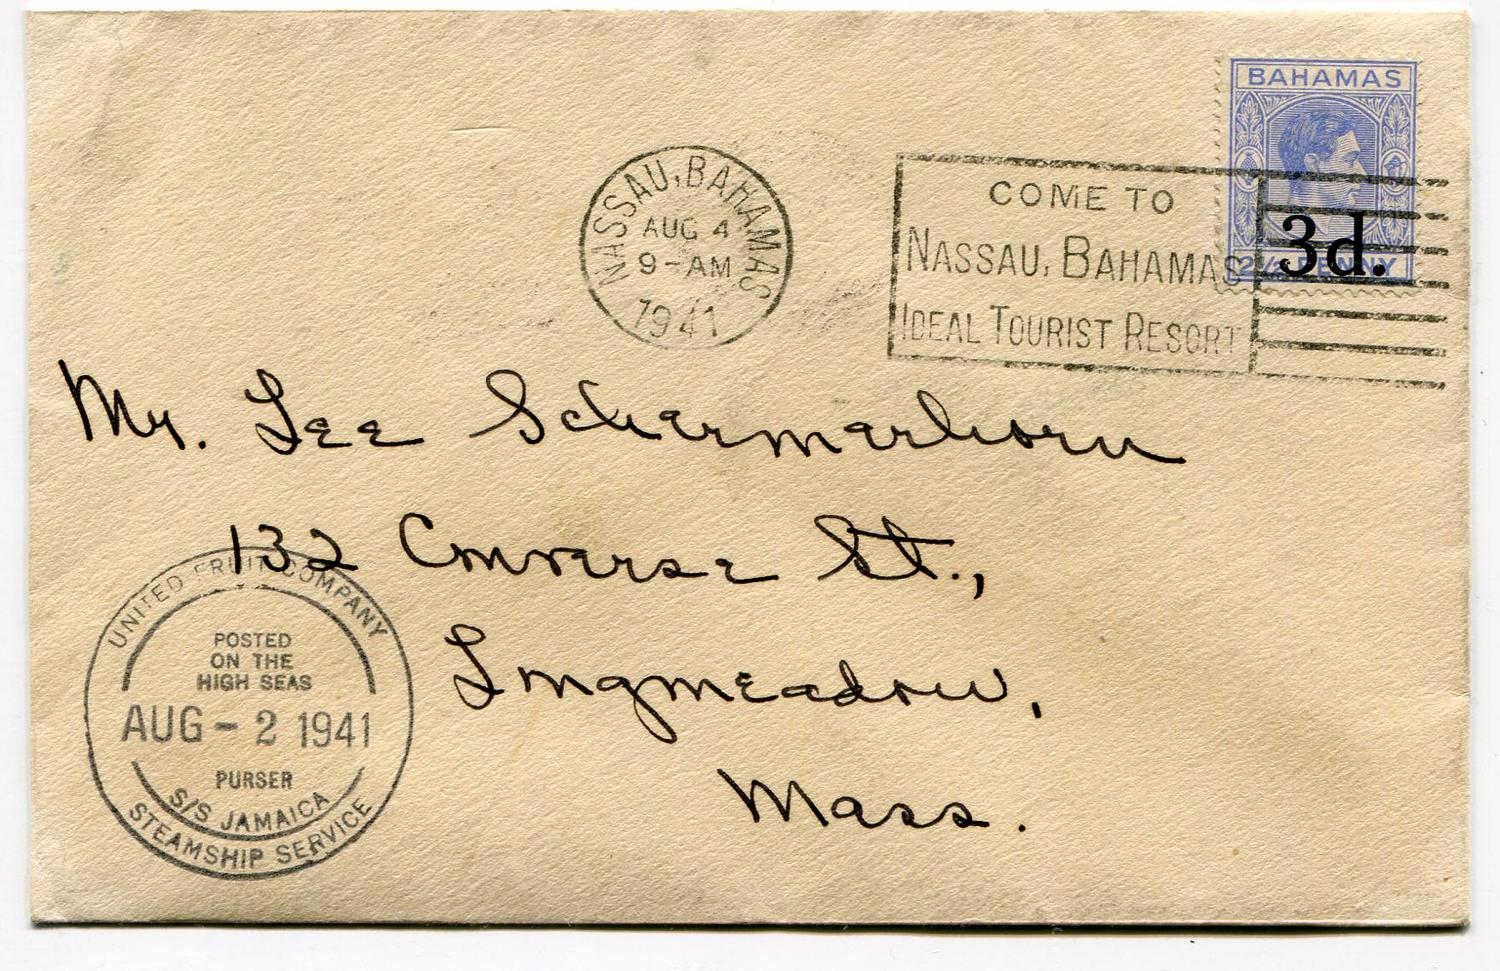 BAHAMAS
3d.
2½ PENNY
NASSAU, BAHAMAS
AUG 4
9-AM
1941
COME TO
NASSAU, BAHAMAS
IDEAL TOURIST RESORT
Mr. Lee Schermerhorn
132 Converse St.,
Longmeadow,
Mass.
UNITED FRUIT COMPANY
POSTED
ON THE
HIGH SEAS
AUG - 2 1941
PURSER
S/S JAMAICA
STEAMSHIP SERVICE